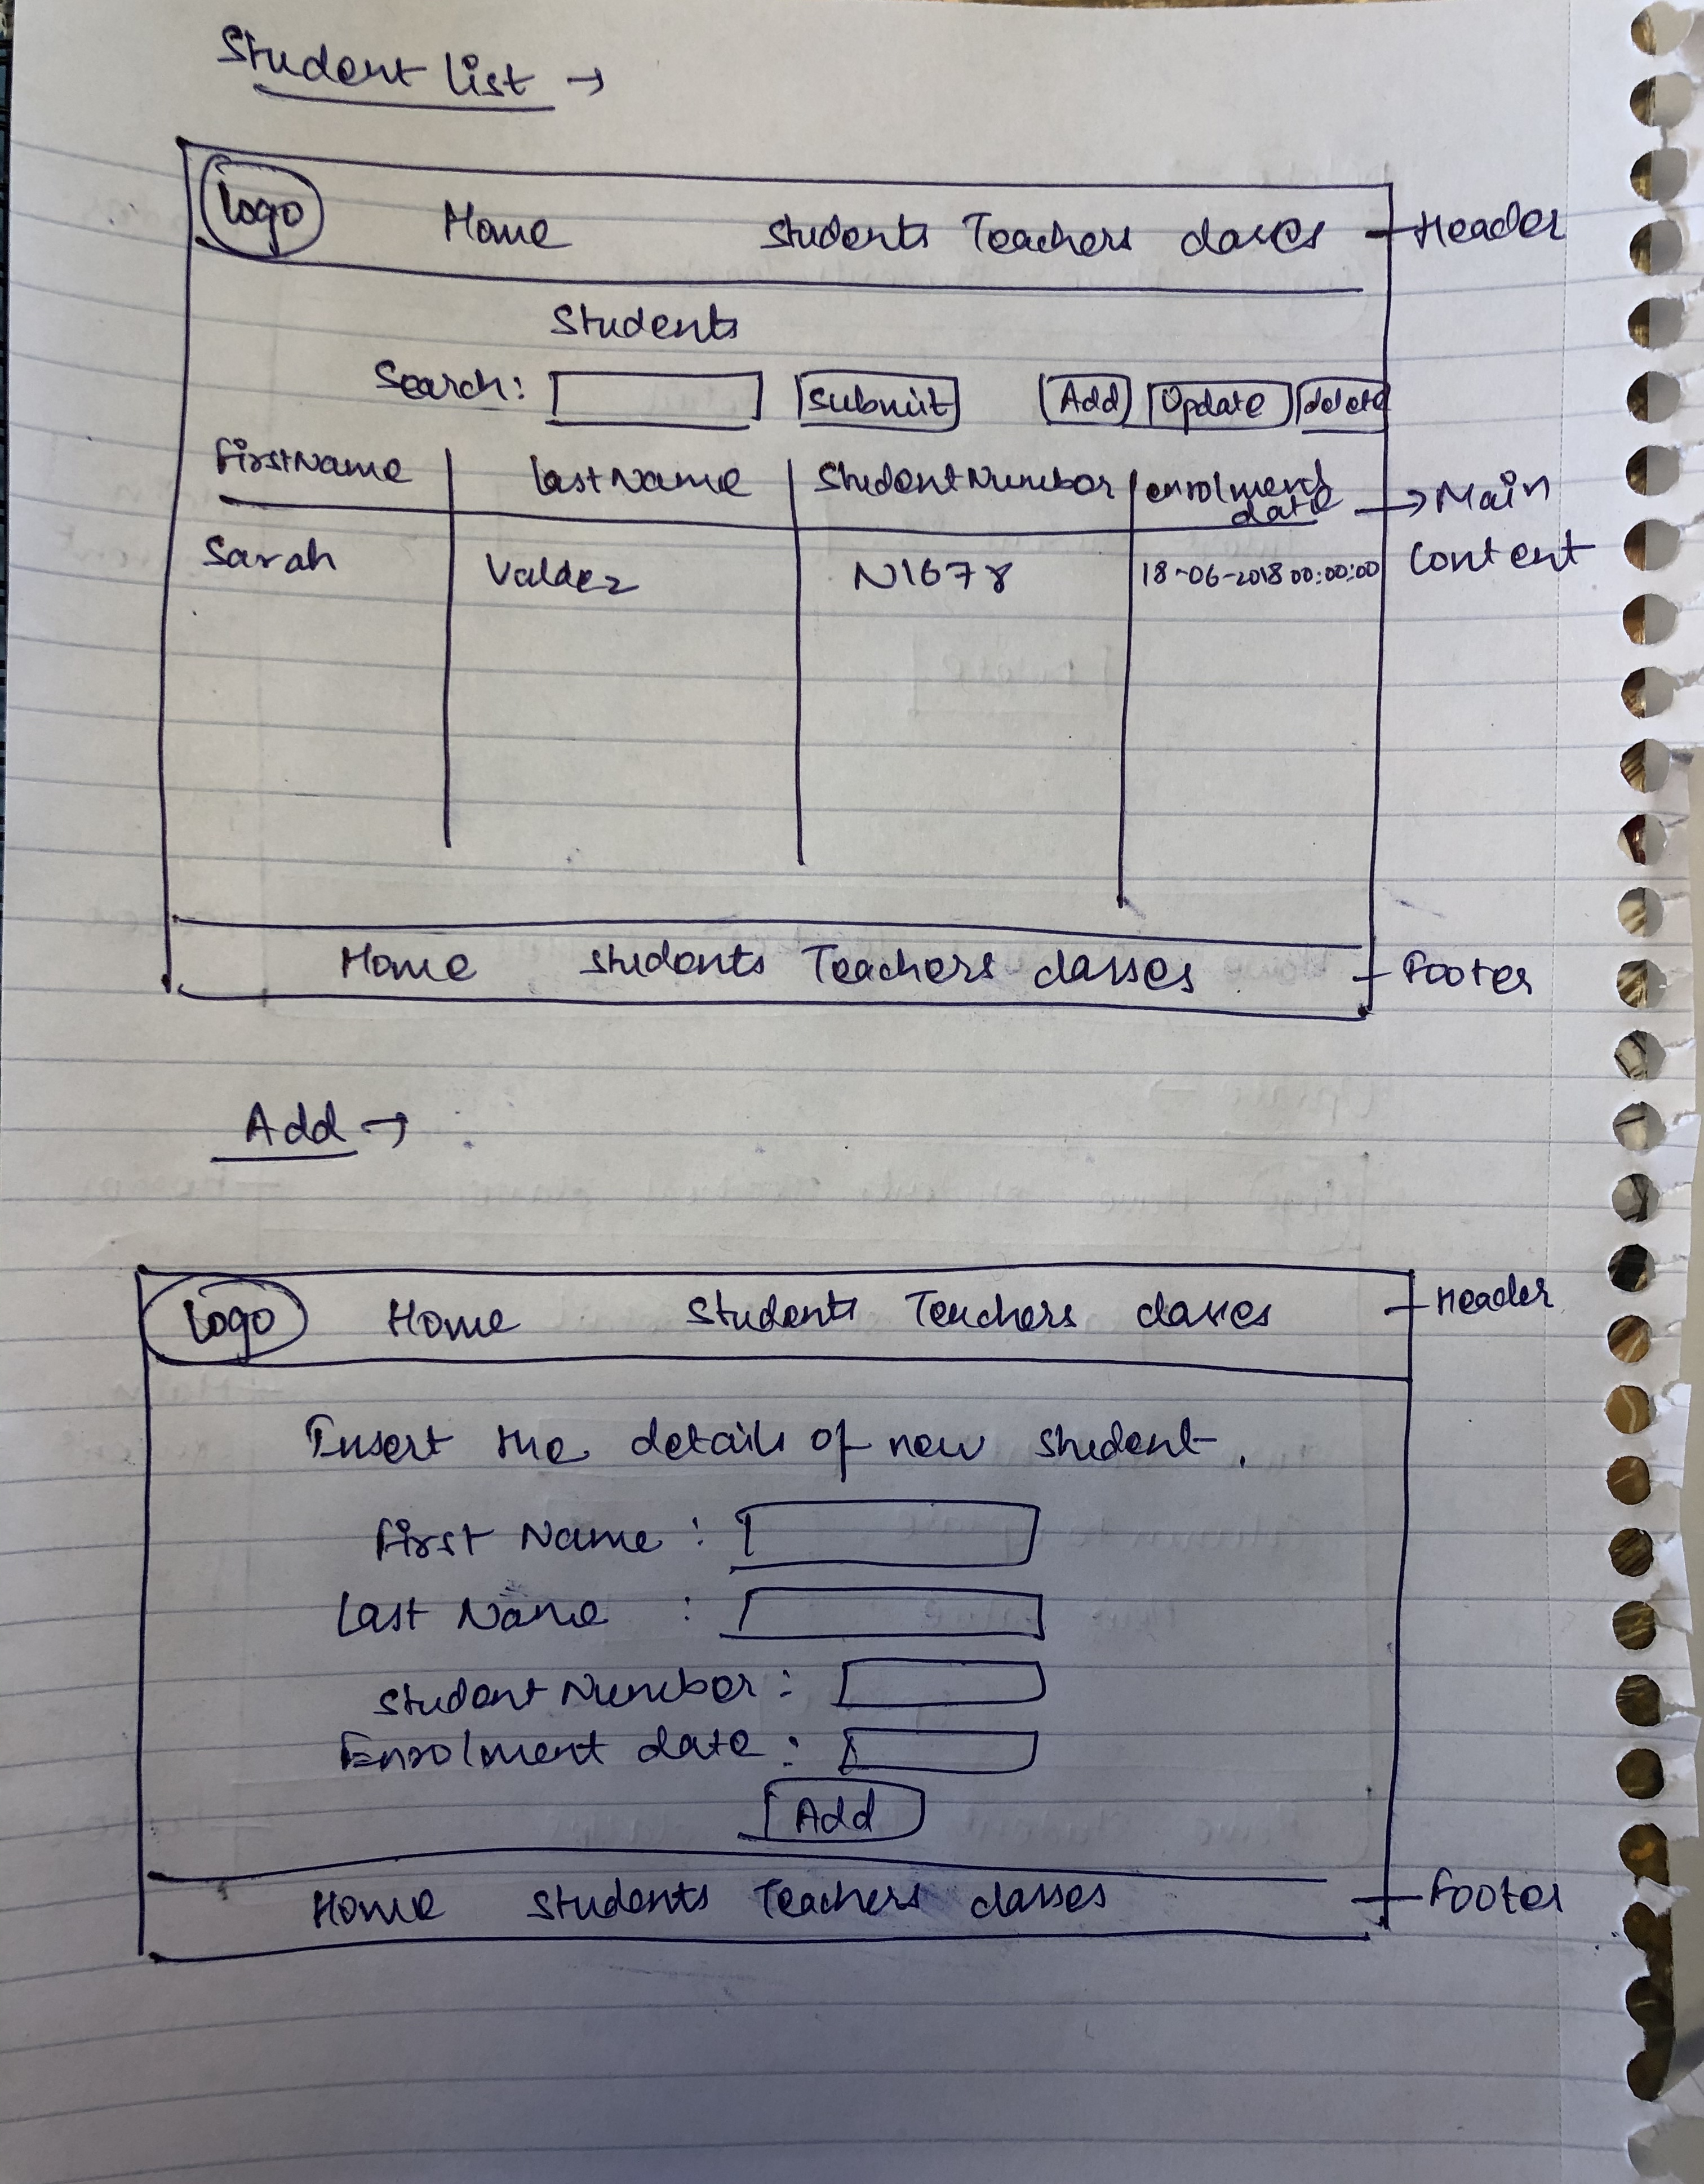 Student list →
Logo Home Students Teachers classes Header
Students
Search: Submit Add Update delete
FirstName LastName StudentNumber enrolment
date → Main
Content
Sarah Valdez N1678 18-06-2018 00:00:00
Home Students Teachers classes Footer
Add →
Logo Home Students Teachers classes Header
Insert the details of new student.
First Name :
Last Name :
Student Number :
Enrolment date :
Add
Home Students Teachers classes Footer